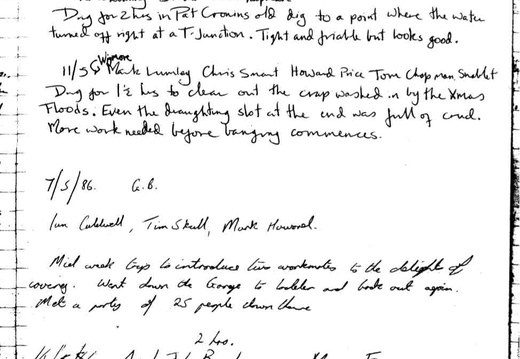 Dug for 2 hrs in Pat Cronins old dig to a point where the water
turned off right at a T-Junction. Tight and friable but looks good.
Mark Lumley Chris Smart Howard Price Tom Chapman, Snablet
Dug for 1½ hrs to clear out the crap washed in by the Xmas
Floods. Even the draughting slot at the end was full of crud.
More work needed before banging commences.
7/5/86. G.B.
Ian Caldwell, Tim Skull, Mark Howard.
Mid week trip to introduce two workmates to the delights of
caving. Went down the Gorge to ladder and back out again.
Met a party of 25 people down there
2 hrs.